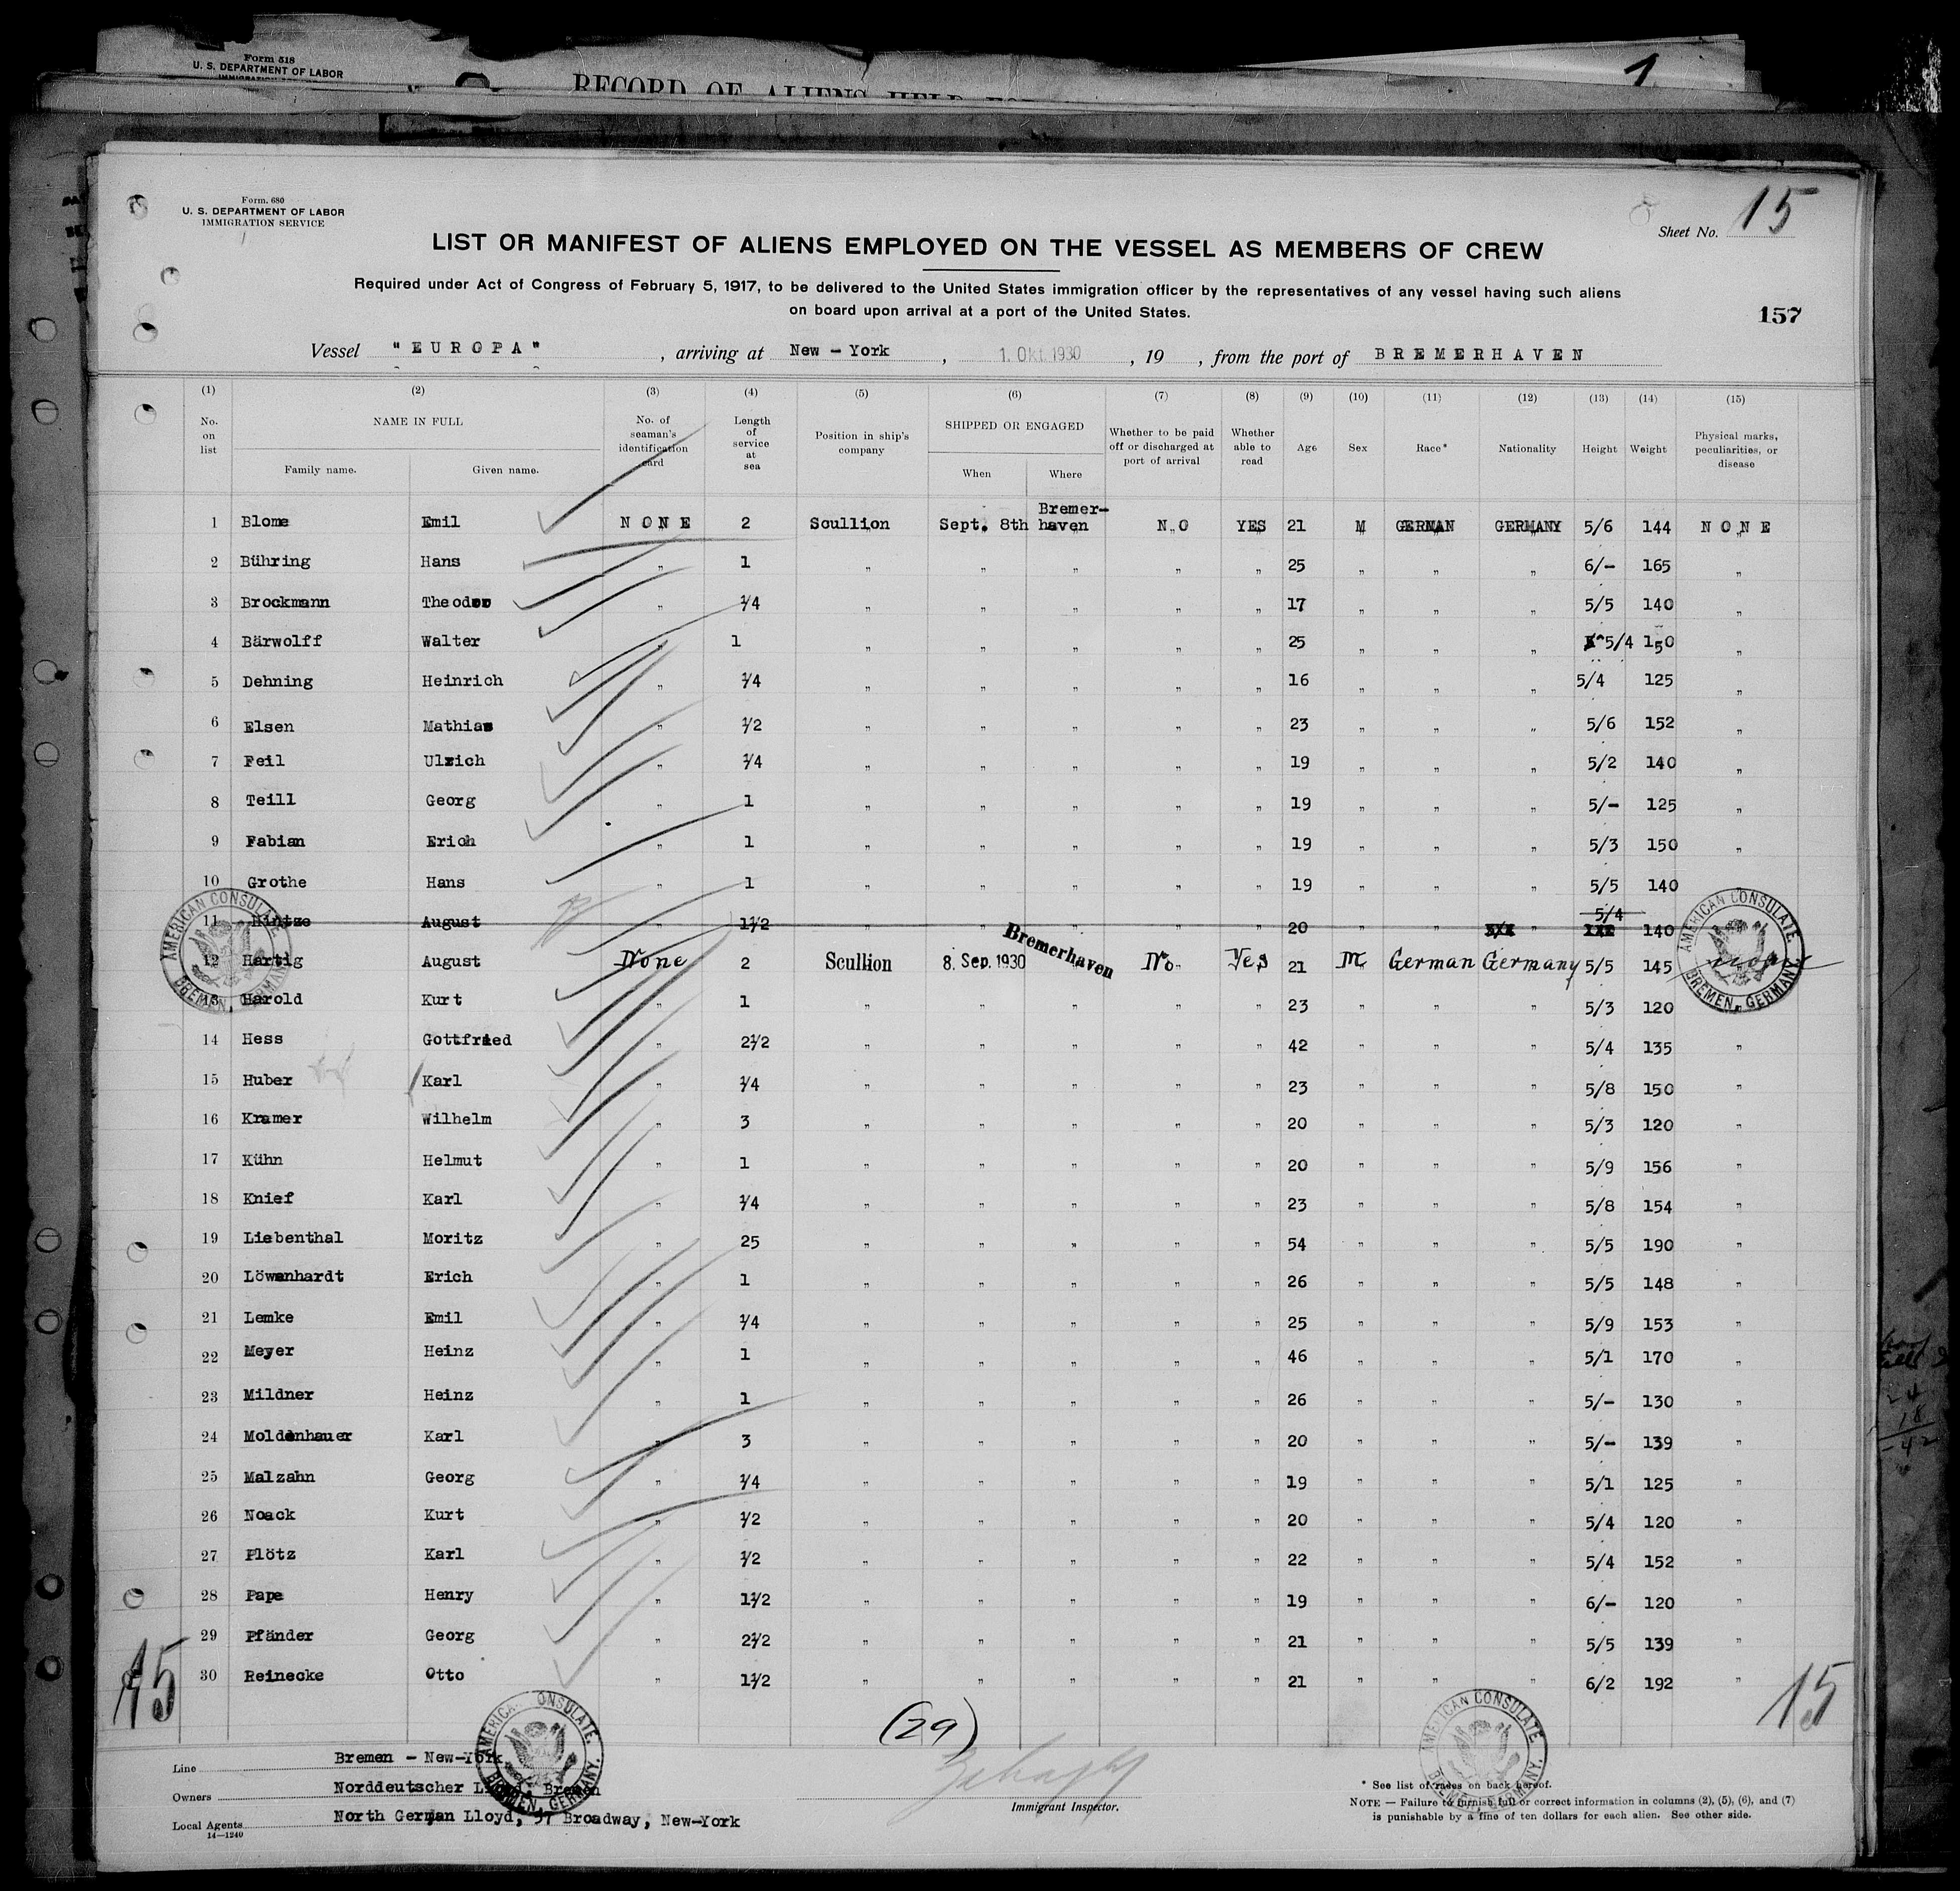 Form 518
U. S. DEPARTMENT OF LABOR
RECORD OF ALIENS HELD
1
Form. 680
U. S. DEPARTMENT OF LABOR
IMMIGRATION SERVICE
Sheet No. 15
LIST OR MANIFEST OF ALIENS EMPLOYED ON THE VESSEL AS MEMBERS OF CREW
Required under Act of Congress of February 5, 1917, to be delivered to the United States immigration officer by the representatives of any vessel having such aliens
on board upon arrival at a port of the United States.
157
Vessel "EUROPA" , arriving at New - York , 1. Okt. 1930 , 19 , from the port of BREMERHAVEN
(1) (2) (3) (4) (5) (6) (7) (8) (9) (10) (11) (12) (13) (14) (15)
No. on list NAME IN FULL Family name. Given name. No. of seaman's identification card Length of service at sea Position in ship's company SHIPPED OR ENGAGED When Where Whether to be paid off or discharged at port of arrival Whether able to read Age Sex Race* Nationality Height Weight Physical marks, peculiarities, or disease
1 Blome Emil NONE 2 Scullion Sept. 8th Bremer-haven NO YES 21 M GERMAN GERMANY 5/6 144 NONE
2 Bühring Hans " 1 " " " " " 25 " " " 6/- 165 "
3 Brockmann Theodor " 1/4 " " " " " 17 " " " 5/5 140 "
4 Bärwolff Walter " 1 " " " " " 25 " " " 5/4 150 "
5 Dehning Heinrich " 1/4 " " " " " 16 " " " 5/4 125 "
6 Elsen Mathias " 1/2 " " " " " 23 " " " 5/6 152 "
7 Feil Ulrich " 1/4 " " " " " 19 " " " 5/2 140 "
8 Teill Georg " 1 " " " " " 19 " " " 5/- 125 "
9 Fabian Erich " 1 " " " " " 19 " " " 5/3 150 "
10 Grothe Hans " 1 " " " " " 19 " " " 5/5 140
11 Hintze August 1 1/2 20 " " " 5/4 140
12 Hartig August None 2 Scullion 8. Sep. 1930 Bremerhaven No Yes 21 M German Germany 5/5 145 none
13 Harold Kurt " 1 " " " " " 23 " " " 5/3 120 "
14 Hess Gottfried " 2 1/2 " " " " " 42 " " " 5/4 135 "
15 Huber Karl " 1/4 " " " " " 23 " " " 5/8 150 "
16 Kramer Wilhelm " 3 " " " " " 20 " " " 5/3 120 "
17 Kühn Helmut " 1 " " " " " 20 " " " 5/9 156 "
18 Knief Karl " 1/4 " " " " " 23 " " " 5/8 154 "
19 Liebenthal Moritz " 25 " " " " " 54 " " " 5/5 190 "
20 Löwenhardt Erich " 1 " " " " " 26 " " " 5/5 148 "
21 Lemke Emil " 1/4 " " " " " 25 " " " 5/9 153 "
22 Meyer Heinz " 1 " " " " " 46 " " " 5/1 170 "
23 Mildner Heinz " 1 " " " " " 26 " " " 5/- 130 "
24 Moldenhauer Karl " 3 " " " " " 20 " " " 5/- 139 "
25 Malzahn Georg " 1/4 " " " " " 19 " " " 5/1 125 "
26 Noack Kurt " 1/2 " " " " " 20 " " " 5/4 120 "
27 Plötz Karl " 1/2 " " " " " 22 " " " 5/4 152 "
28 Pape Henry " 1 1/2 " " " " " 19 " " " 6/- 120 "
29 Pfänder Georg " 2 1/2 " " " " " 21 " " " 5/5 139 "
30 Reinecke Otto " 1 1/2 " " " " " 21 " " " 6/2 192 "
AMERICAN CONSULATE BREMEN, GERMANY.
AMERICAN CONSULATE BREMEN, GERMANY.
15
(29)
15
AMERICAN CONSULATE. BREMEN, GERMANY.
AMERICAN CONSULATE BREMEN, GERMANY.
Line Bremen - New-York
Owners Norddeutscher Lloyd, Bremen
Local Agents North German Lloyd, 57 Broadway, New-York
14-1240
Immigrant Inspector.
* See list of races on back hereof.
NOTE — Failure to furnish full or correct information in columns (2), (5), (6), and (7)
is punishable by a fine of ten dollars for each alien. See other side.
24
18
42